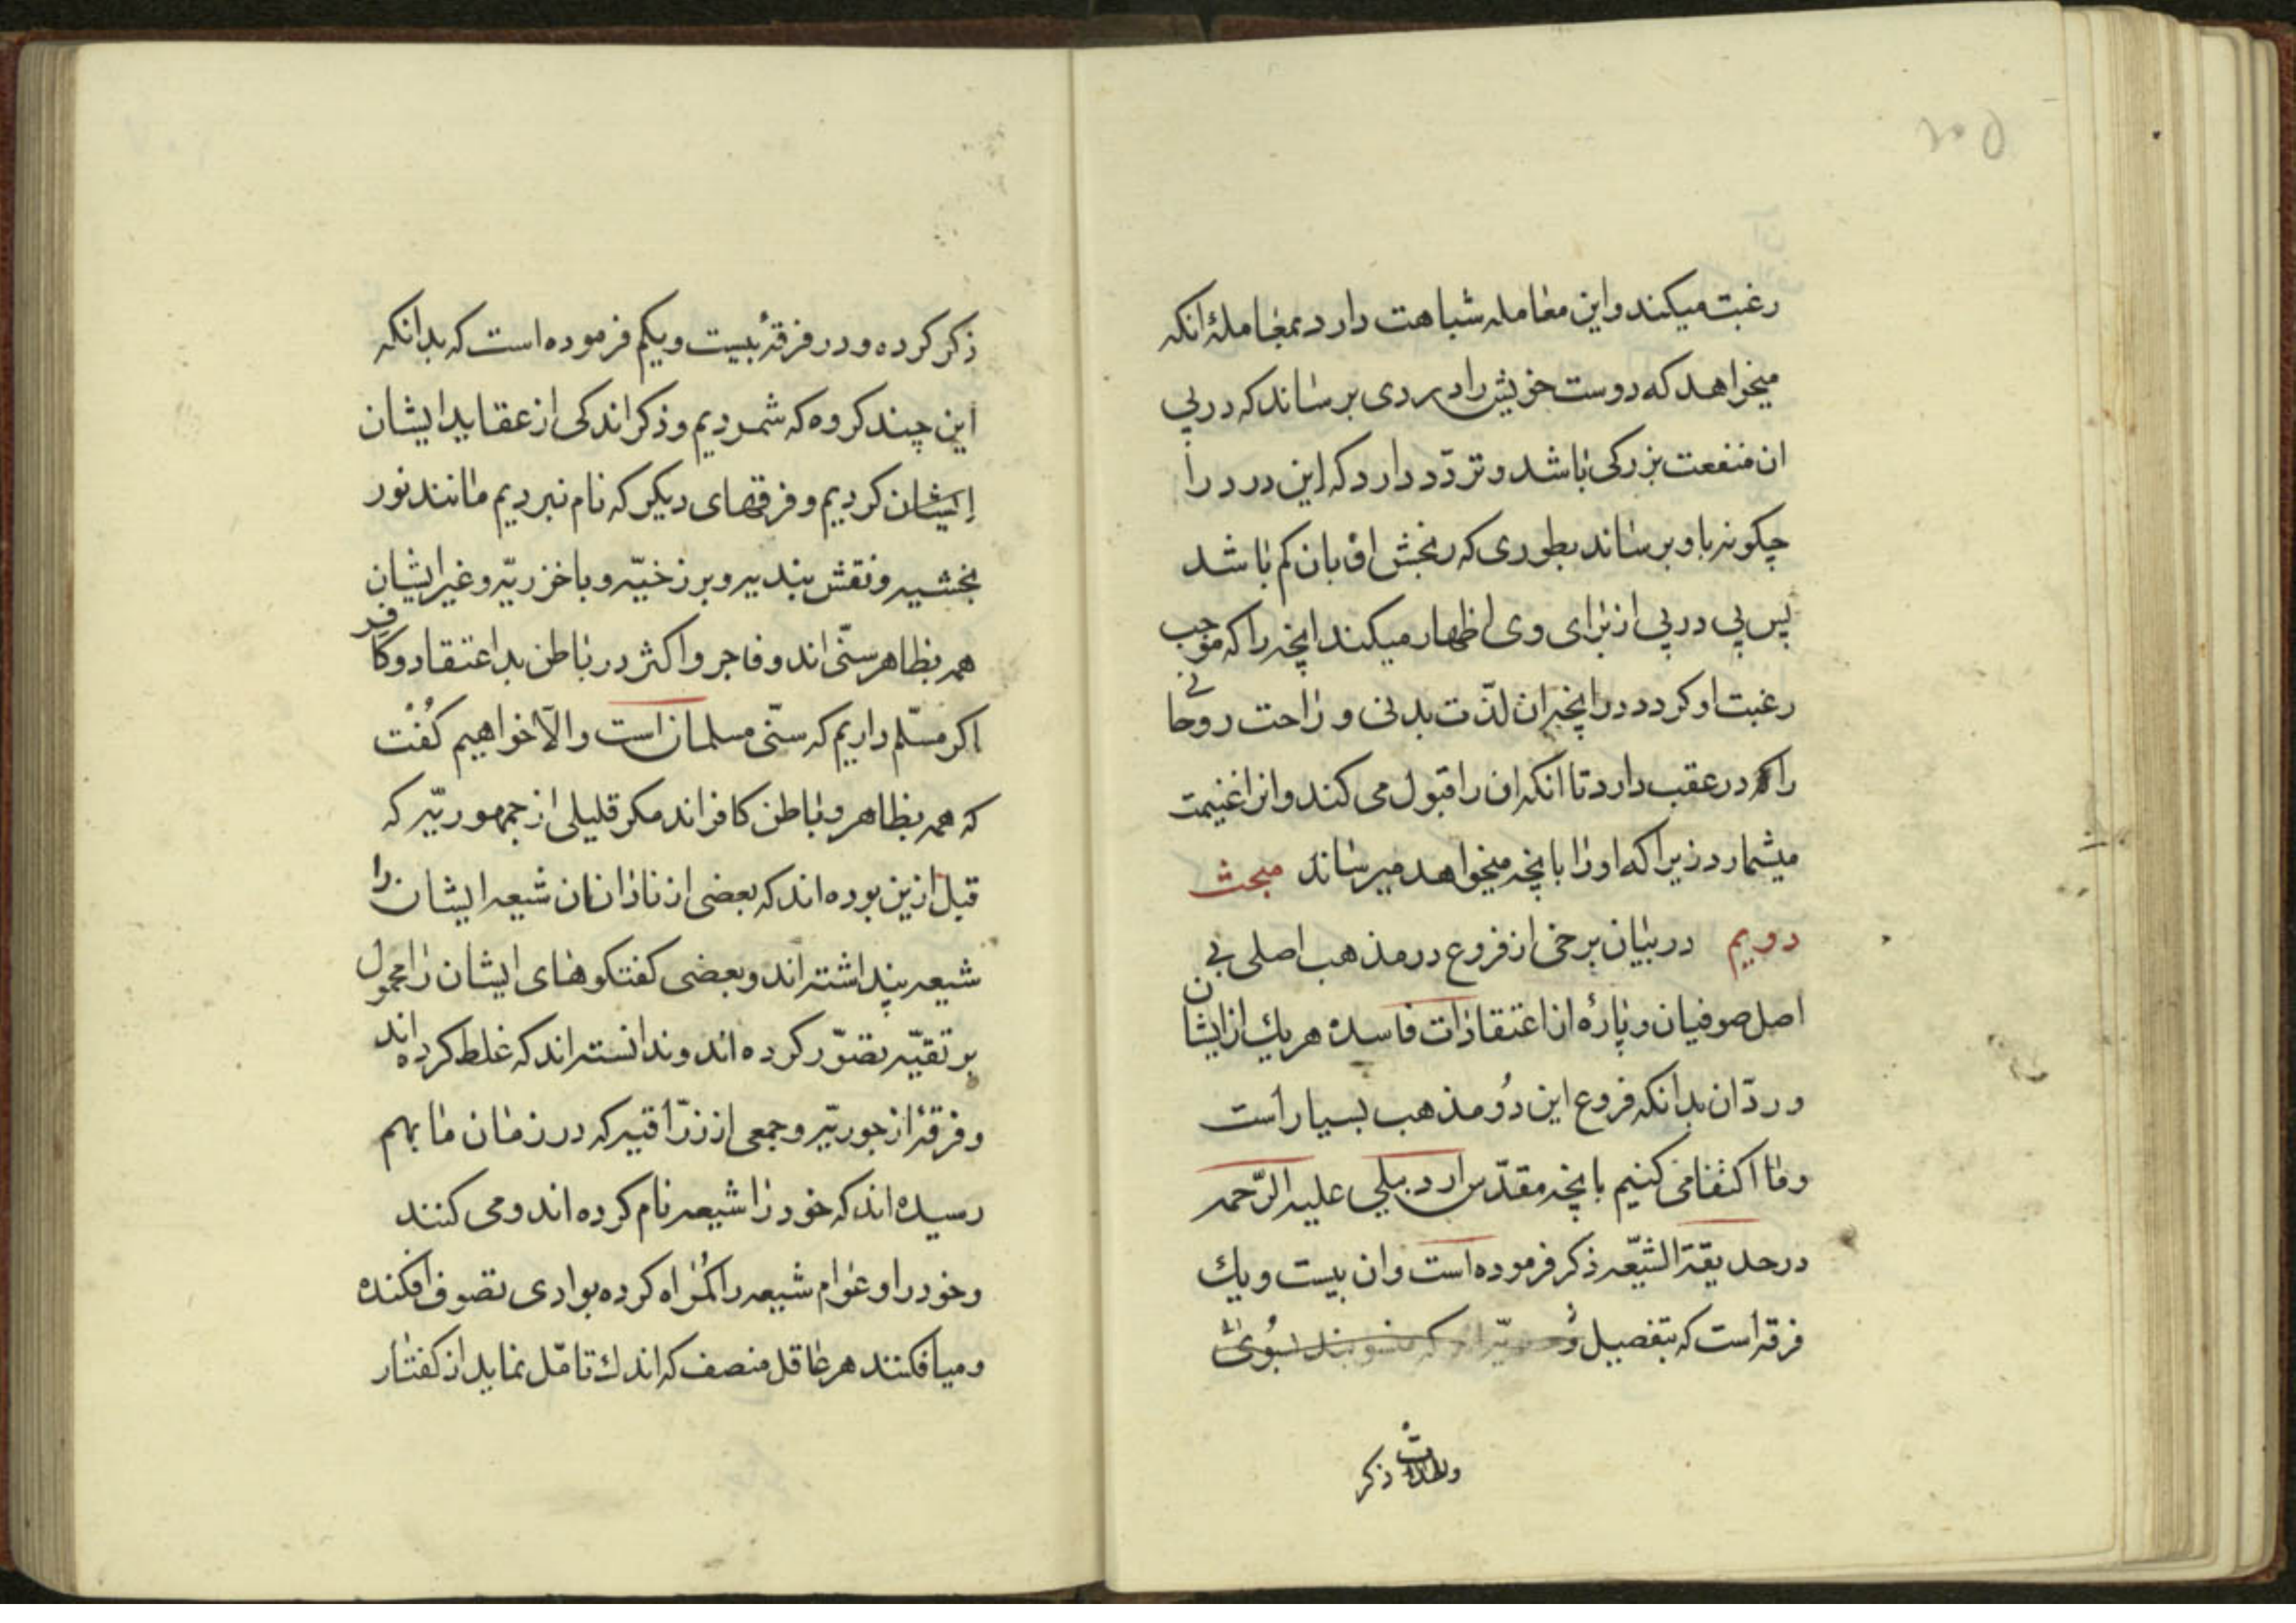 ۲۰۵
رغبت میکند و این معامله شباهت دارد بمعاملهٔ انکه
میخواهد که دوست خویش را دردی برساند که در پی
ان منفعت بزرکی باشد و تردّد دارد که این درد را
چکونه باو برساند بطوری که رنجش او بان کم باشد
پس پی در پی از برای وی اظهار میکند انچه را که موجب
رغبت او کردد در انچیز ان لذّت بدنی و راحت روحانی
را که در عقب دارد تا انکه ان را قبول می کند و انرا غنیمت
میشمارد زیرا که او را بانچه میخواهد میرساند مبحث
دویم در بیان برخی از فروع در مذهب اصلی بی
اصل صوفیان و پارهٔ از اعتقادات فاسده هر یك از ایشان
و ردّ ان بدانکه فروع این دُو مذهب بسیار است
و ما اکتفا می کنیم بانچه مقدّس اردبیلی علیه الرّحمه
در حدیقة الشیّعه ذکر فرموده است و ان بیست و یك
فرقه است که بتفصیل
ذکر
ذکر کرده و در فرقهٔ بیست و یکم فرموده است که بدانکه
این چند کروه که شمردیم و ذکر اندکی از عقاید ایشان
ایشان کردیم و فرقهای دیکر که نام نبردیم مانند نور
بخشیه و نقش بندیه و برزخیّه و باخزریّه و غیر ایشان
همه بظاهر سنّی اند و فاجر و اکثر در باطن بد اعتقاد و کافر
اکر مسّلم داریم که سنّی مسلمان است و الّا خواهیم کُفت
که همه بظاهر و باطن کافر اند مکر قلیلی از جمهوریّه که
قبل ازین بوده اند که بعضی از نادانان شیعه ایشان را
شیعه پنداشته اند و بعضی کفتکوهای ایشان را محمول
بر تقیّه تصوّر کرده اند و ندانسته اند که غلط کرده اند
و فرقهٔ از جوریّه و جمعی از زرّاقیه که در زمان ما بهم
رسیده اند که خود را شیعه نام کرده اند و می کنند
و خود را و عوام شیعه را کمراه کرده بوادی تصوف افکنده
و میافکنند هر عاقل منصف که اندك تامّل نماید از کفتار